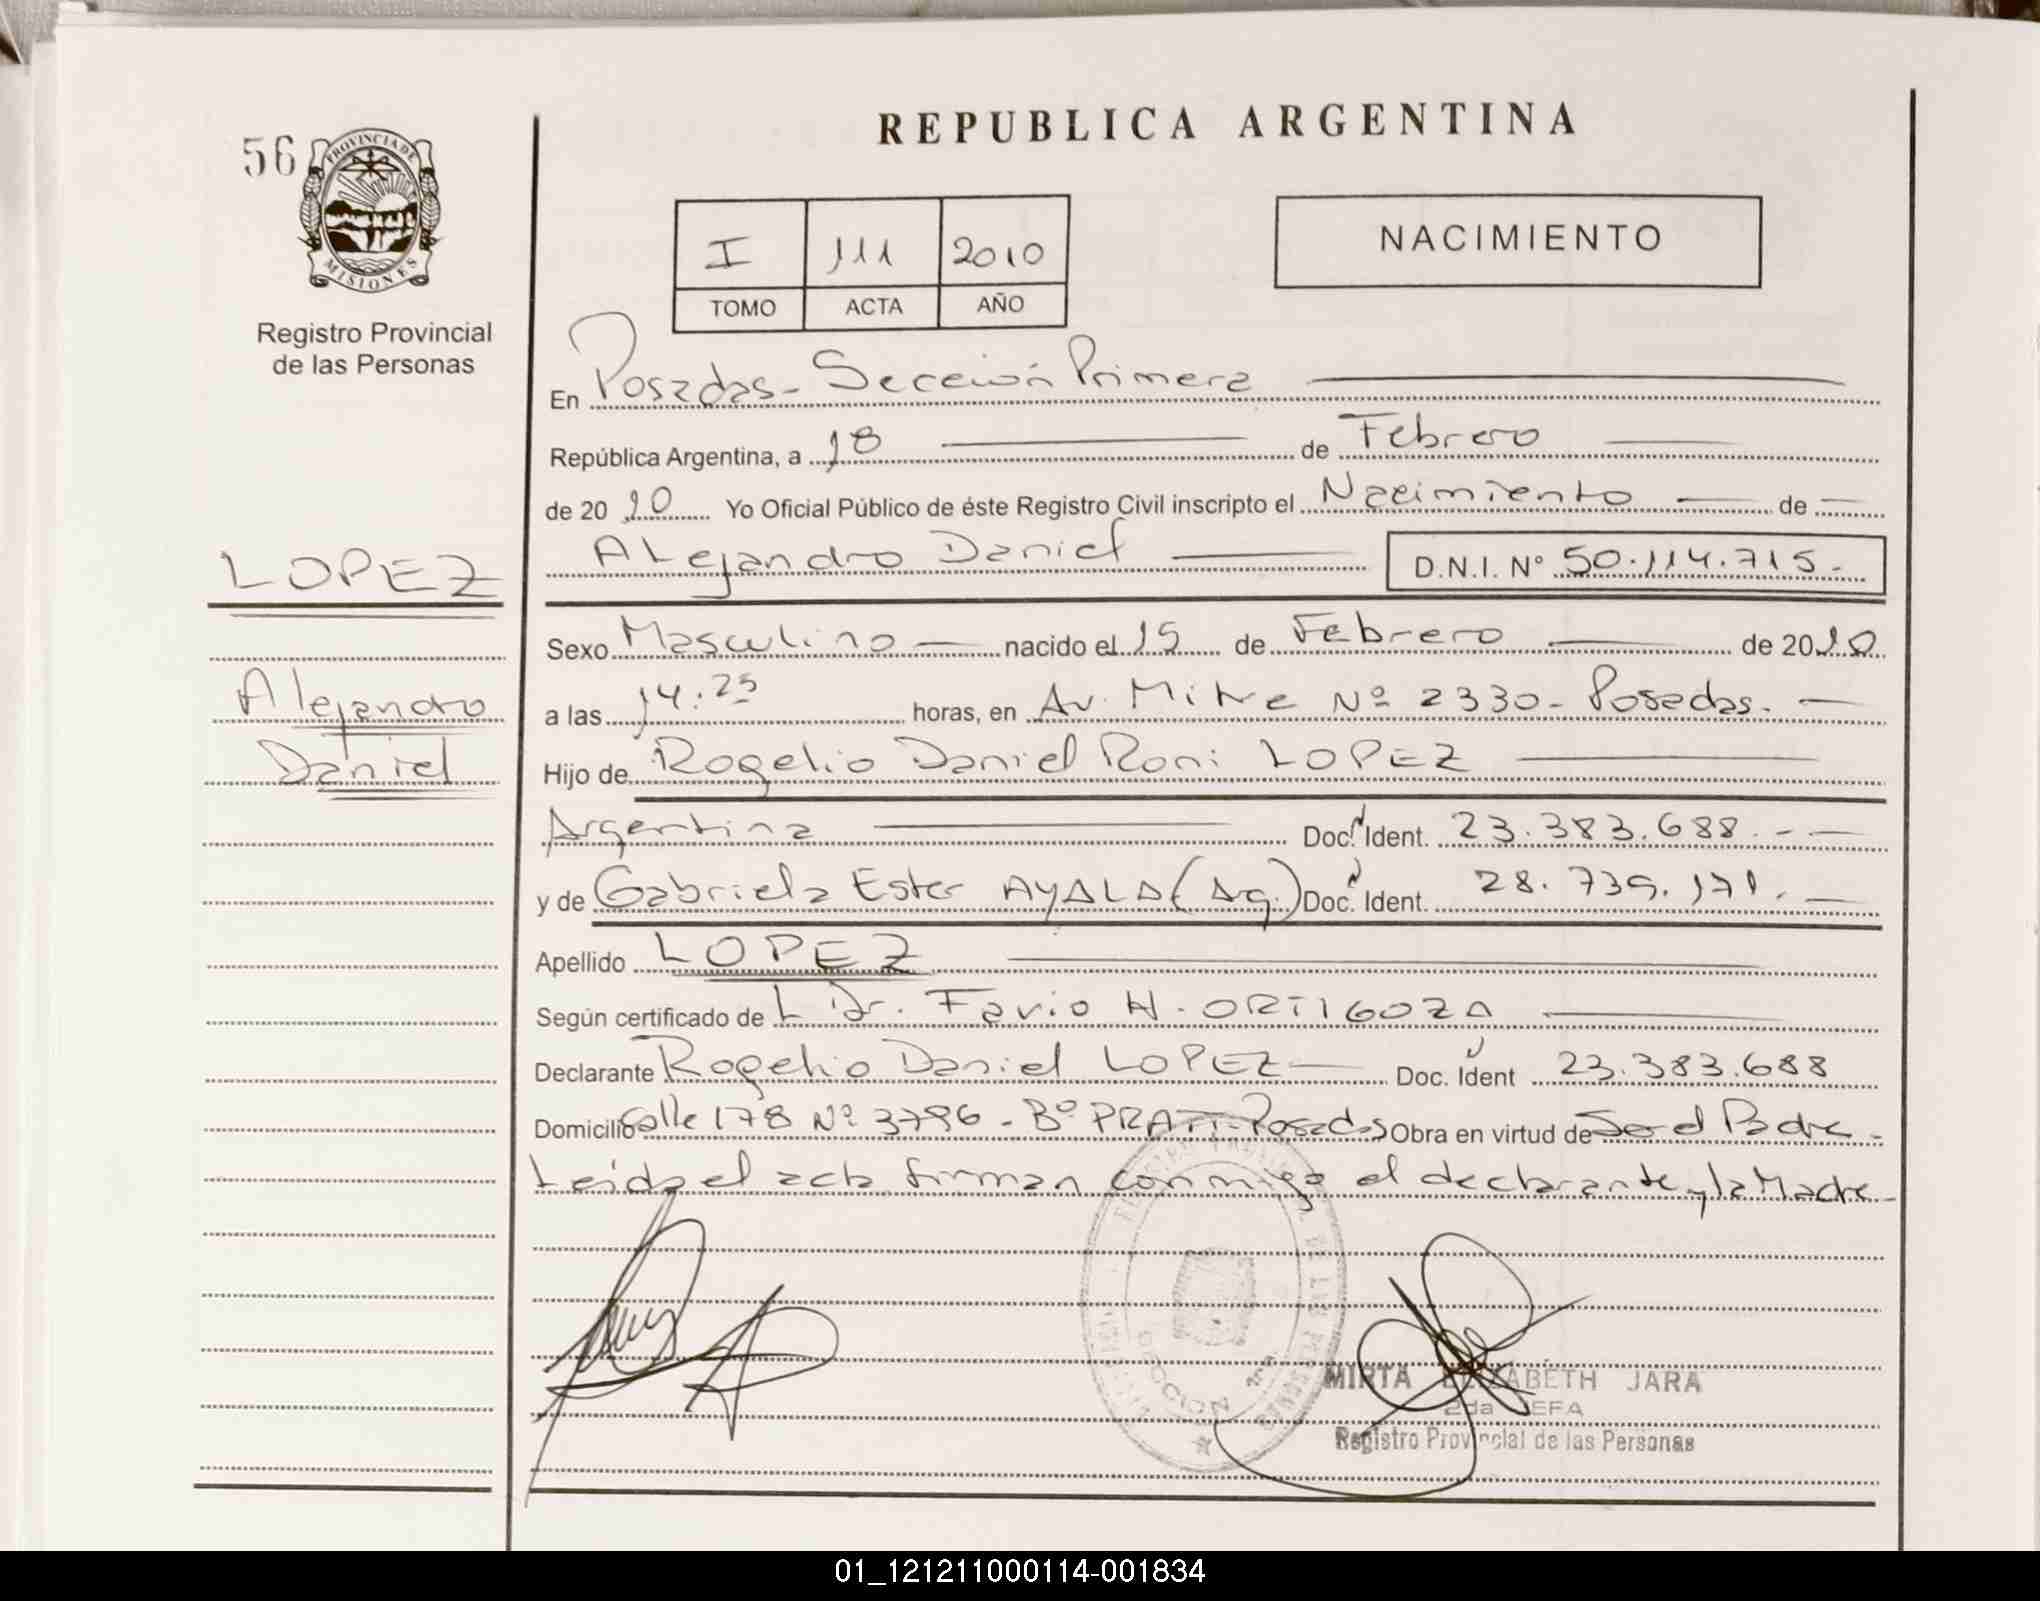 REPUBLICA ARGENTINA
56
PROVINCIA DE
MISIONES
Registro Provincial
de las Personas
I 111 2010
TOMO ACTA AÑO
NACIMIENTO
En Posadas - Sección Primera
República Argentina, a 18 de Febrero
de 20 10 Yo Oficial Público de éste Registro Civil inscripto el Nacimiento de
LOPEZ
Alejandro Daniel D.N.I. Nº 50.114.715.-
Sexo Masculino nacido el 15 de Febrero de 2010
Alejandro
a las 14:25 horas, en Av. Mitre Nº 2330 - Posadas.
Daniel
Hijo de Rogelio Daniel Roni LOPEZ
Argentina Doc. Ident. 23.383.688.-
y de Gabriela Ester AYALA (Arg.) Doc. Ident. 28.739.171.
Apellido LOPEZ
Según certificado de L Dr. Favio H. ORTIGOZA
Declarante Rogelio Daniel LOPEZ Doc. Ident 23.383.688
Domicilio Calle 178 Nº 3796 - Bº PRATT - Posadas Obra en virtud de Ser el Padre -
Leida el acta firman conmigo el declarante y la Madre
MIRTA ELIZABETH JARA
2da JEFA
Registro Provincial de las Personas
01_121211000114-001834